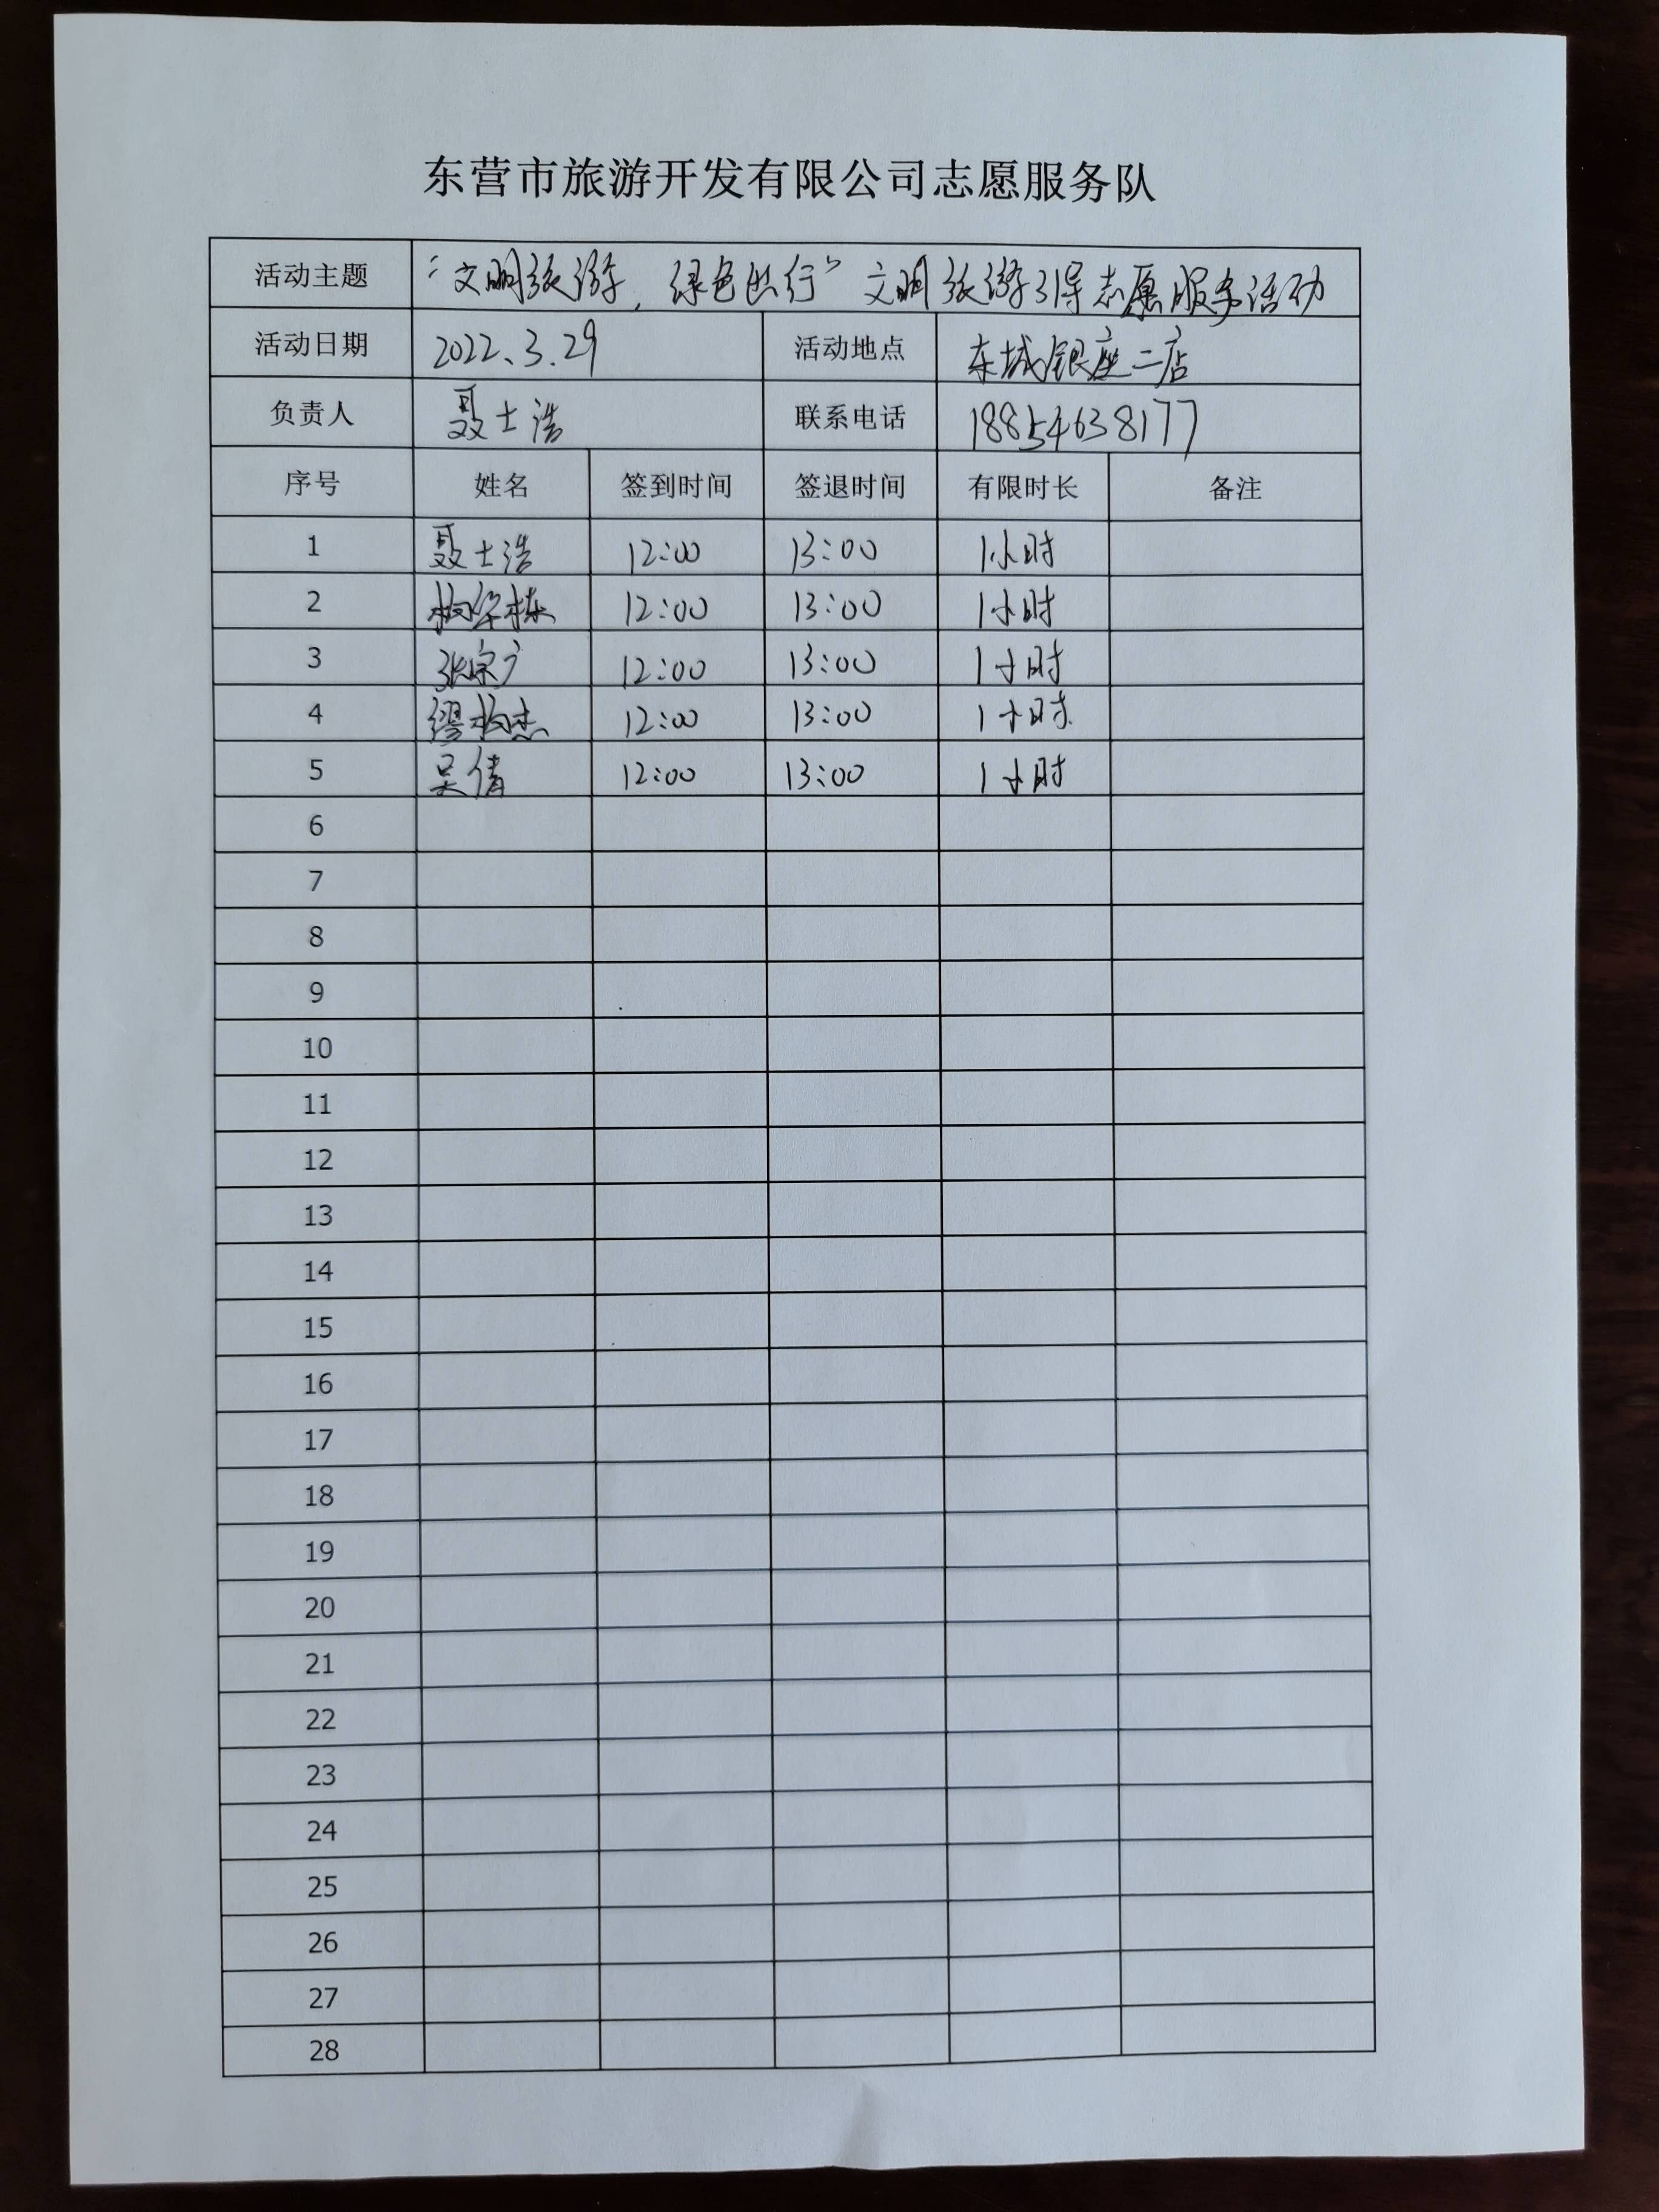 东营市旅游开发有限公司志愿服务队
活动主题 “文明旅游，绿色出行”文明旅游引导志愿服务活动
活动日期 2022.3.29 活动地点 东城银座二店
负责人 聂士浩 联系电话 18854638177
序号 姓名 签到时间 签退时间 有限时长 备注
1 聂士浩 12:00 13:00 1小时
2 12:00 13:00 1小时
3 张宗广 12:00 13:00 1小时
4 12:00 13:00 1小时
5 吴倩 12:00 13:00 1小时
6
7
8
9
10
11
12
13
14
15
16
17
18
19
20
21
22
23
24
25
26
27
28